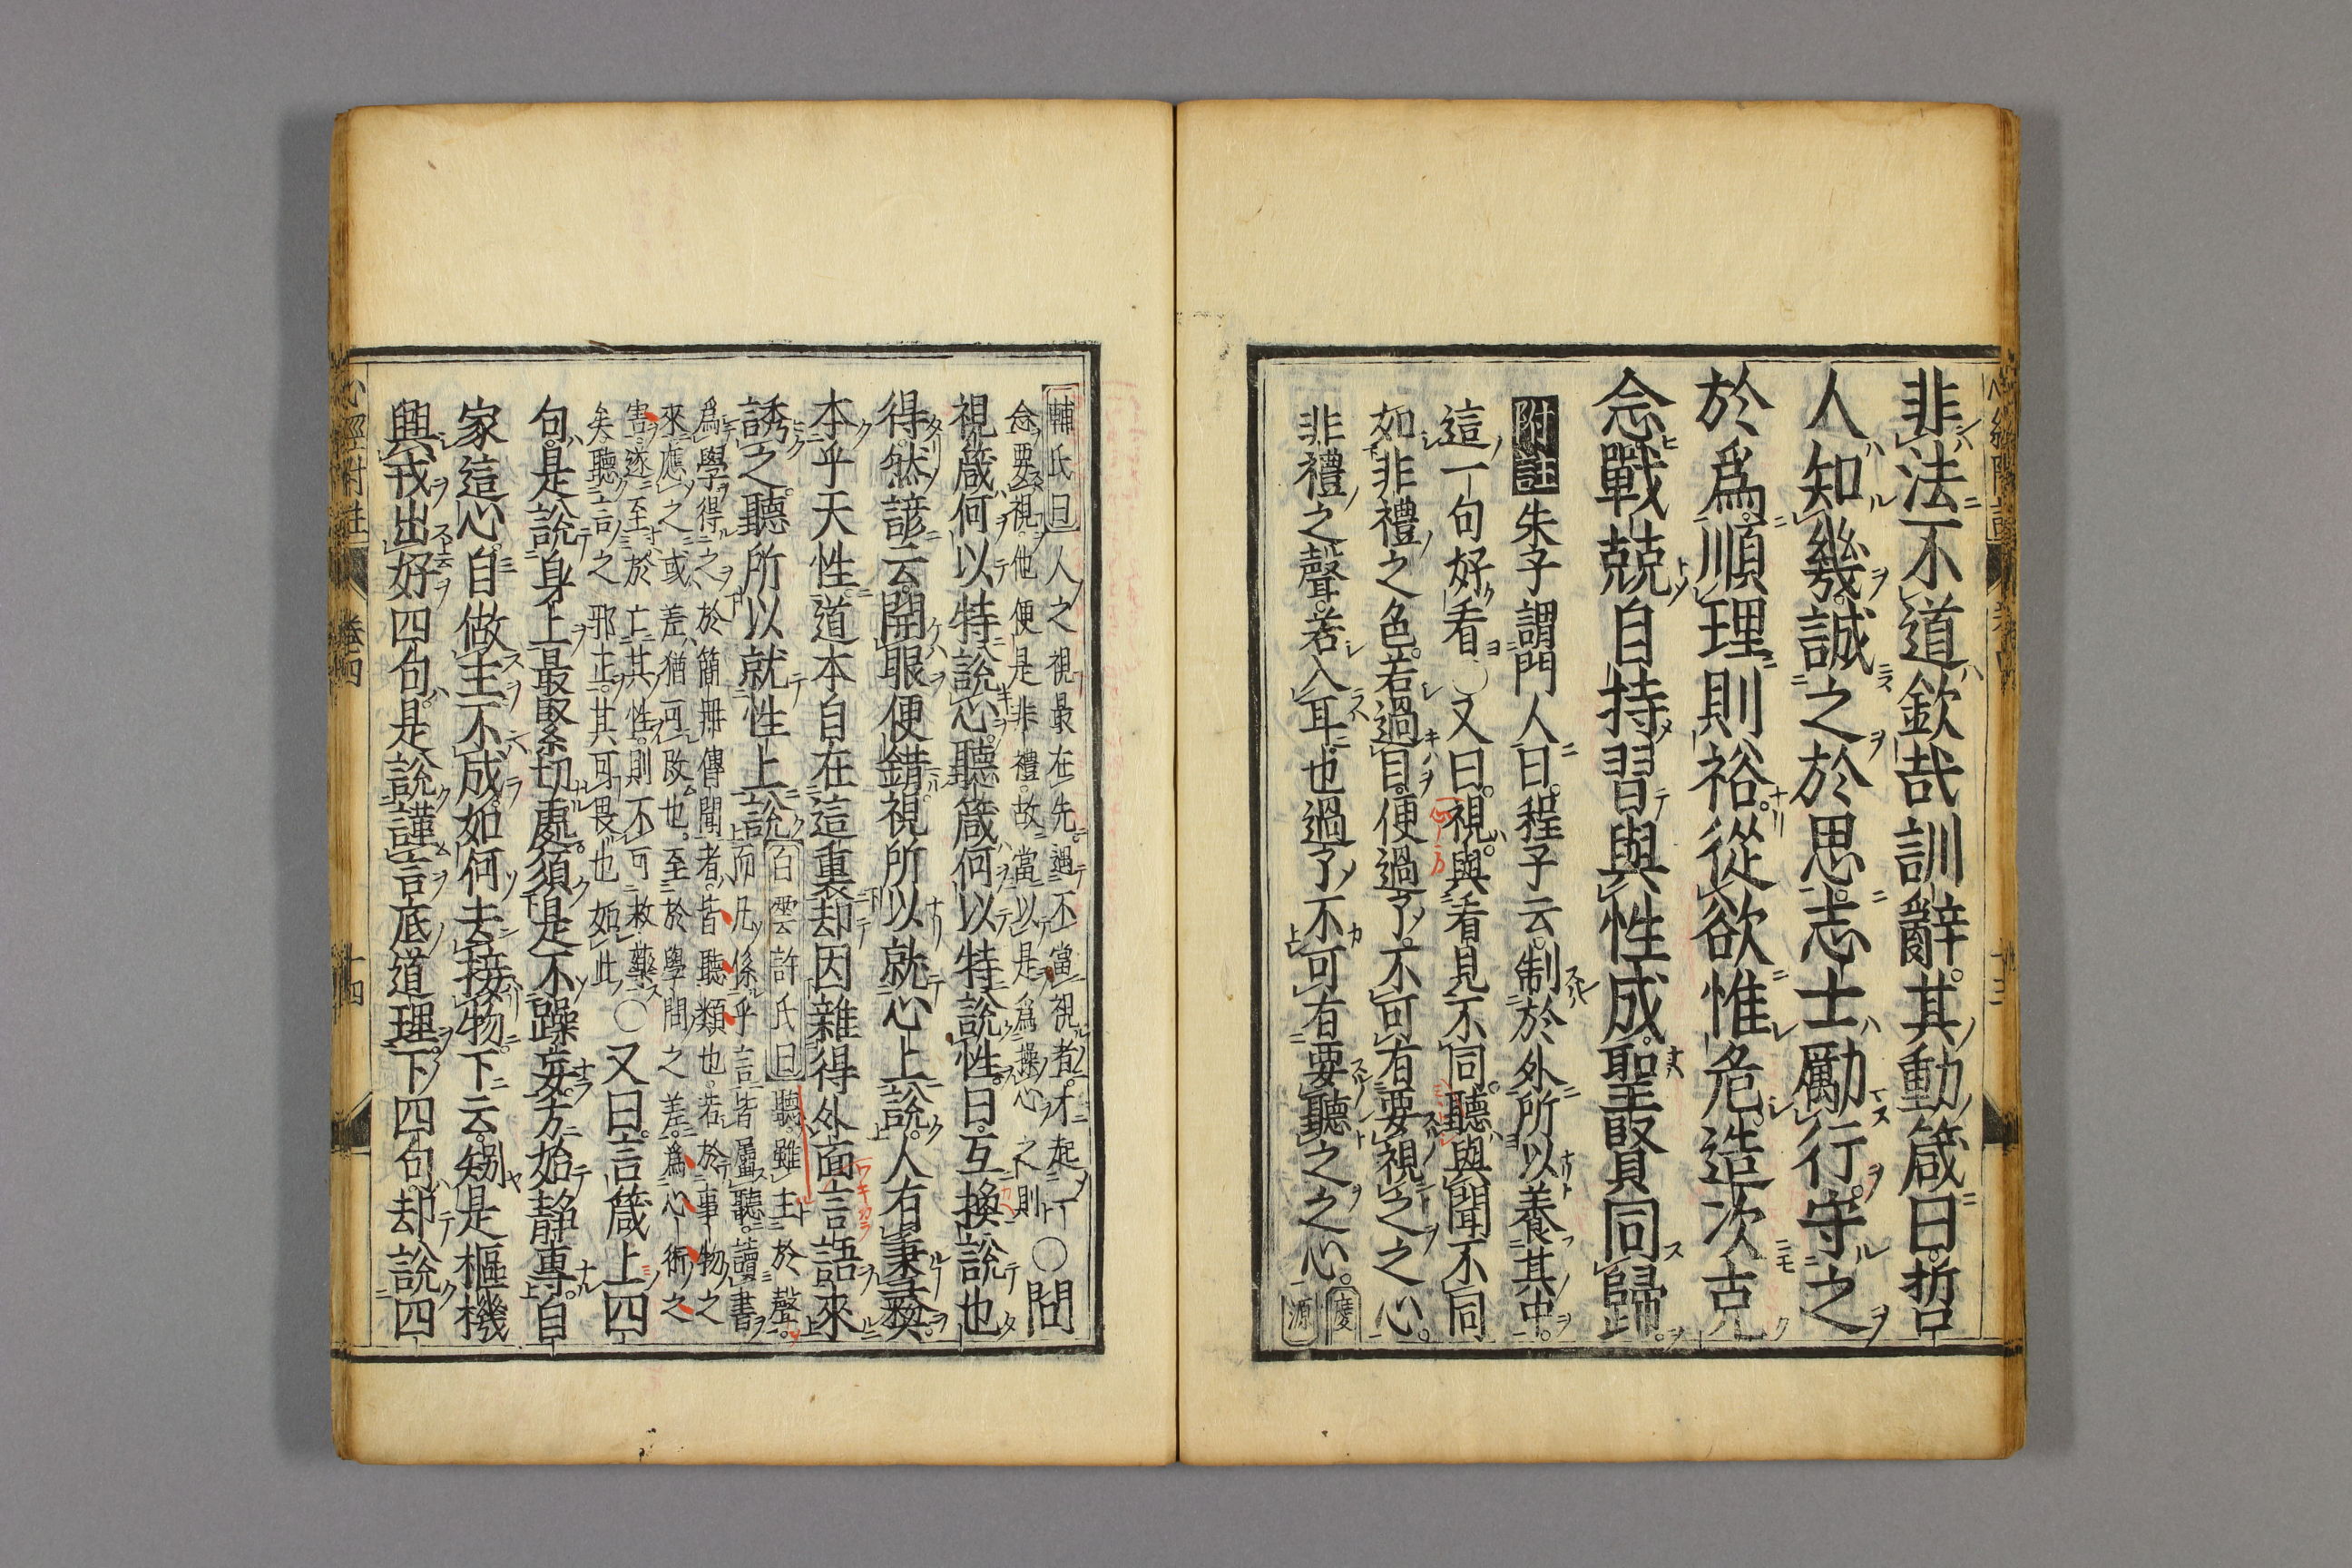 非法不道欽哉訓辭其動箴曰哲
人知幾誠之於思志士勵行守之
於爲順理則裕從欲惟危造次克
念戰兢自持習與性成聖賢同歸
附註朱子謂門人曰程子云制於外所以養其中
這一句好看○又曰視與看見不同聽與聞不同
如非禮之色若過目便過了不可有要視之之心
非禮之聲若入耳也過了不可有要聽之之心 慶
源
輔氏曰人之視最在先遇不當視者才起一
念要視他便是非禮故當以是爲操心之則○問
視箴何以特說心聽箴何以特說性曰互換說也
得然諺云開眼便錯視所以就心上說人有秉彝
本乎天性道本自在這裏却因雜得外面言語來
誘之聽所以就性上說白雲許氏曰聽雖主於聲
而凡係乎言皆屬聽讀書
爲學得之於簡冊傳聞者皆聽類也若於事物之
來應之或差猶可改也至於學問之差爲心術之
害遂至於亡其性則不可救藥
矣聽言之邪正其可畏也如此○又曰言箴上四
句是說身上最緊切處須是不躁妄方始靜專自
家這心自做主不成如何去接物下云矧是樞機
興戎出好四句是說謹言底道理下四句却說四
心經附註 卷四 十四